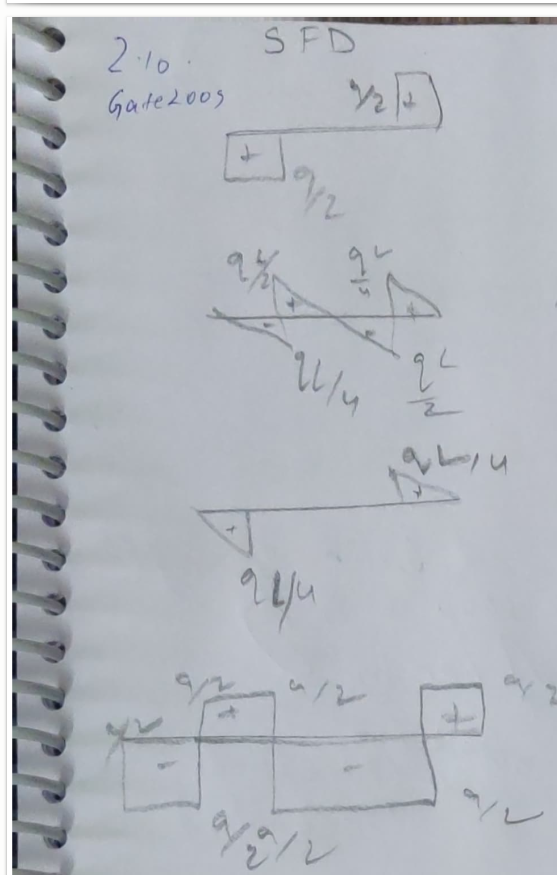 SFD
2.10.
Gate2009
q/2 +
+
q/2
qL/2 qL/4
+ +
- -
qL/4 qL/2
qL/4
+
+
qL/4
q/2 q/2 q/2
q/2 + +
- -
q/2 q/2 q/2